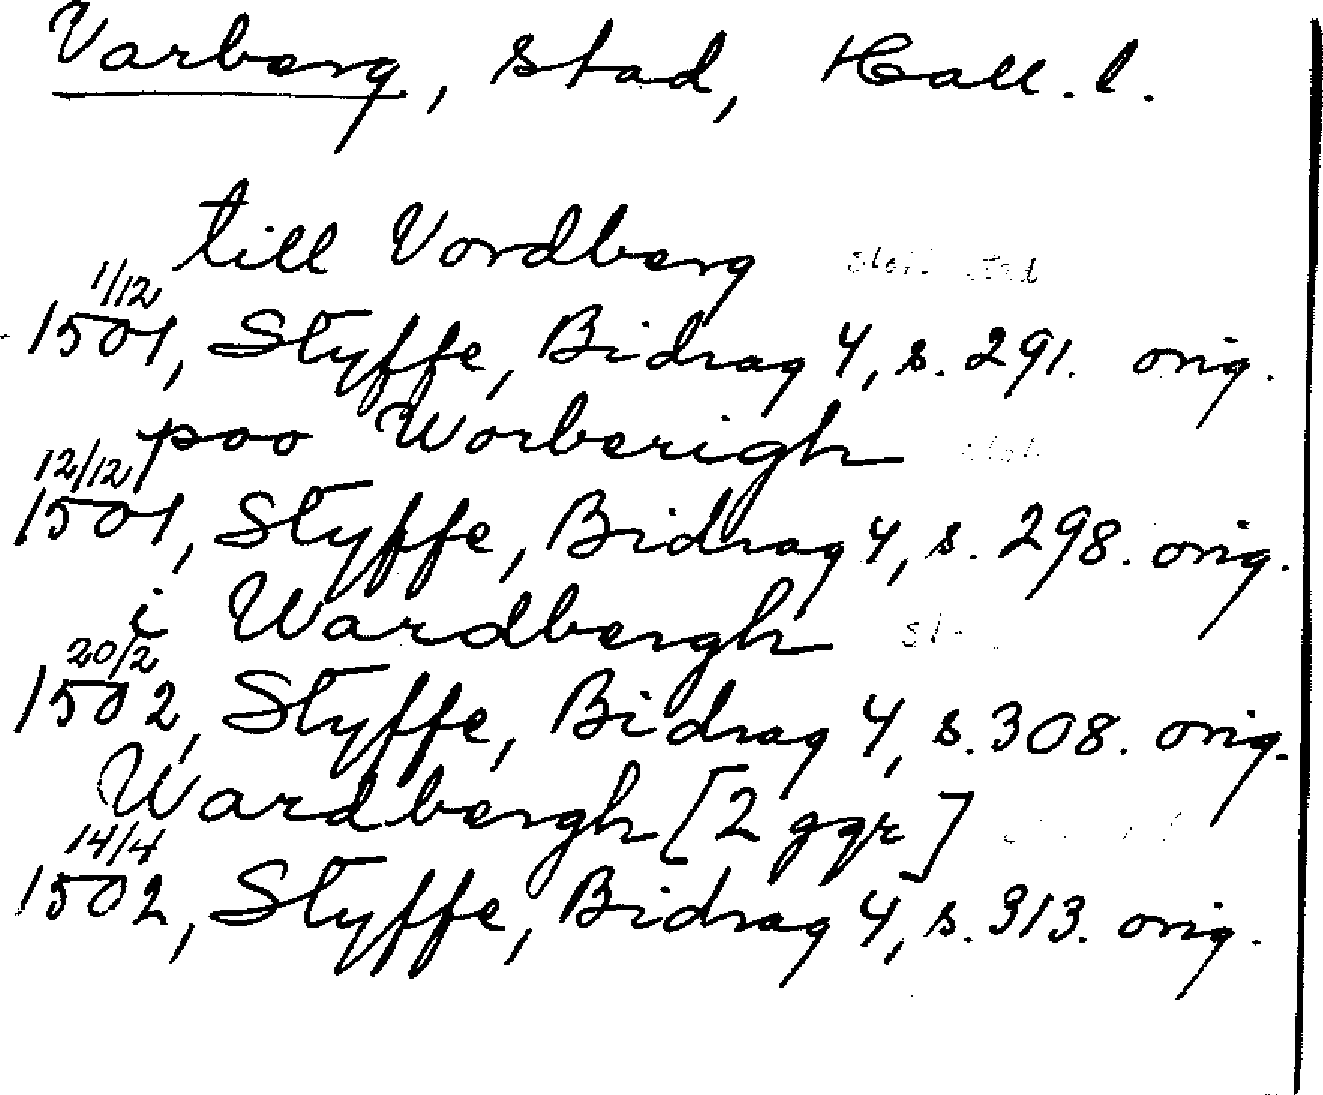 Varberg, stad, Hall. l.
till Vordberg
1/12
1501, Styffe, Bidrag 4, s. 291. orig.
poo Worberigh
12/12
1501, Styffe, Bidrag 4, s. 298. orig.
i Wardbergh
20/2
1502, Styffe, Bidrag 4, s. 308. orig.
Wardbergh [2 ggr]
14/4
1502, Styffe, Bidrag 4, s. 313. orig.